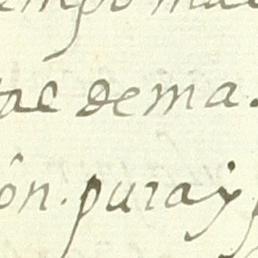 empo ma
tac dema.
ôn. pura y